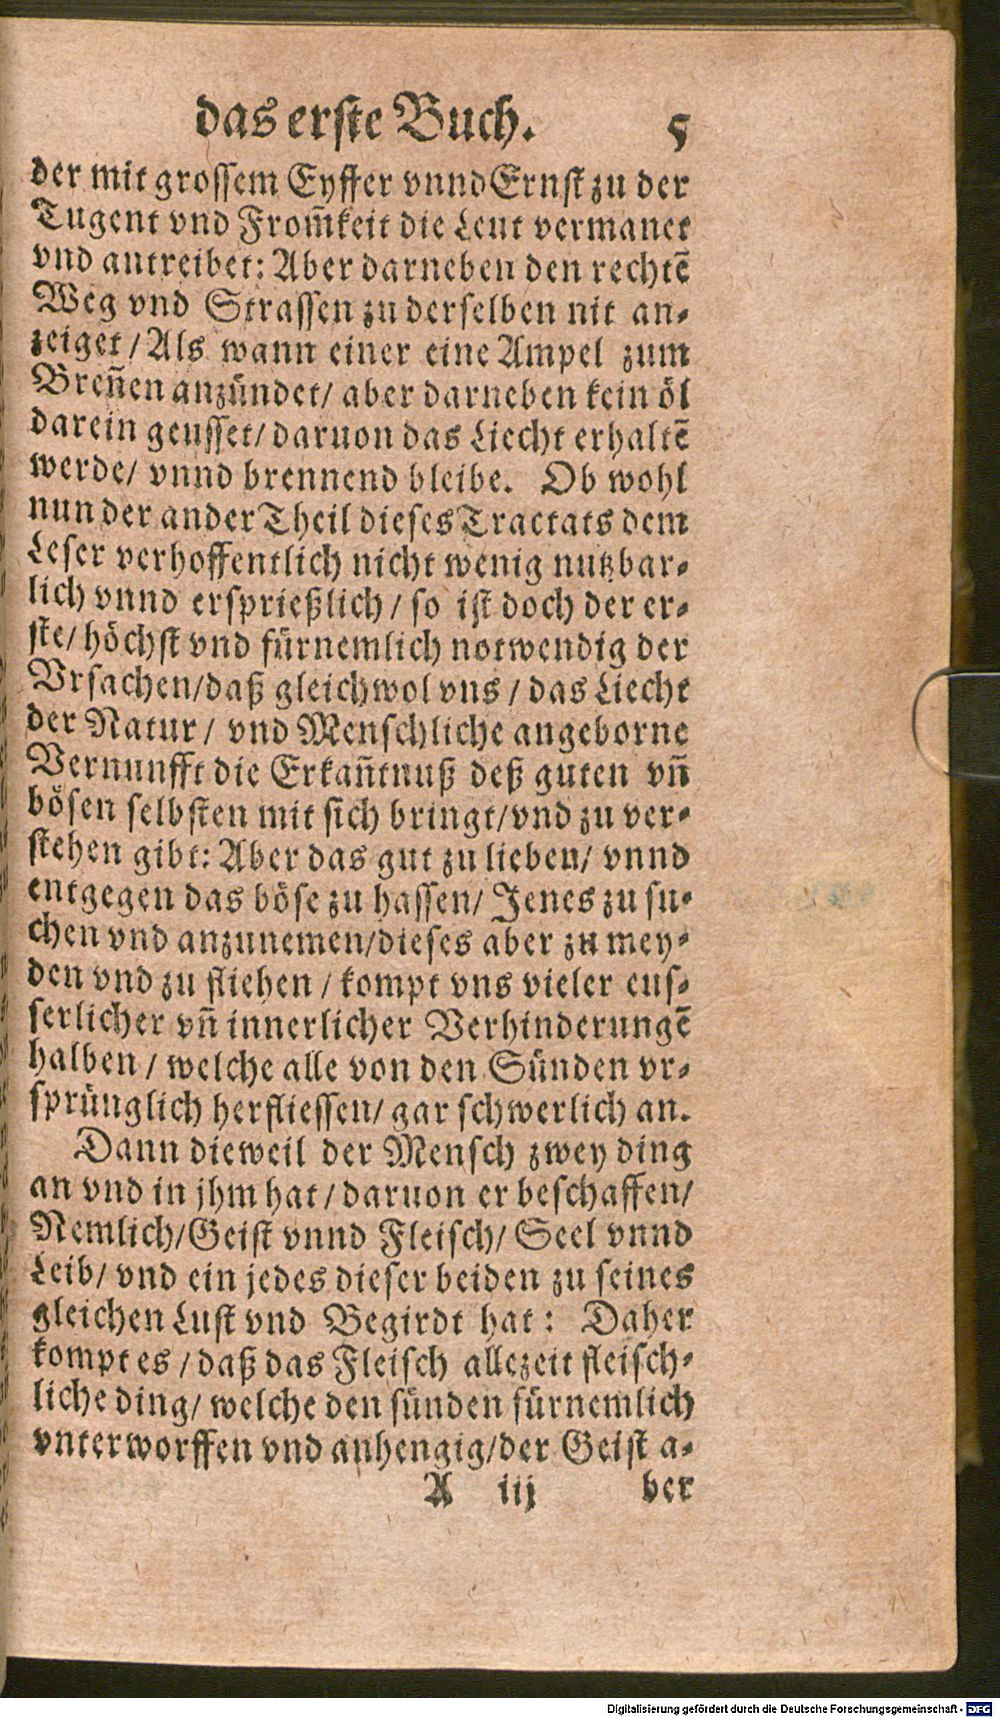 das erste Buch. 5
der mit grossem Eyffer vnnd Ernst zu der
Tugent vnd From̃keit die Leut vermanet
vnd antreibet: Aber darneben den rechtẽ
Weg vnd Strassen zu derselben nit an-
zeiget / Als wann einer eine Ampel zum
Breñen anzündet / aber darneben kein öl
darein geusset / daruon das Liecht erhaltẽ
werde / vnnd brennend bleibe. Ob wohl
nun der ander Theil dieses Tractats dem
Leser verhoffentlich nicht wenig nutzbar-
lich vnnd ersprießlich / so ist doch der er-
ste / höchst vnd fürnemlich notwendig der
Vrsachen / daß gleichwol vns / das Liecht
der Natur / vnd Menschliche angeborne
Vernunfft die Erkañtnuß deß guten vñ
bösen selbsten mit sich bringt / vnd zu ver-
stehen gibt: Aber das gut zu lieben / vnnd
entgegen das böse zu hassen / Jenes zu su-
chen vnd anzunemen / dieses aber zu mey-
den vnd zu fliehen / kompt vns vieler eus-
serlicher vñ innerlicher Verhinderungẽ
halben / welche alle von den Sünden vr-
sprünglich herfliessen / gar schwerlich an.
Dann dieweil der Mensch zwey ding
an vnd in jhm hat / daruon er beschaffen /
Nemlich / Geist vnnd Fleisch / Seel vnnd
Leib / vnd ein jedes dieser beiden zu seines
gleichen Lust vnd Begirdt hat: Daher
kompt es / daß das Fleisch allezeit fleisch-
liche ding / welche den sünden fürnemlich
vnterworffen vnd anhengig / der Geist a-
A iij ber
Digitalisierung gefördert durch die Deutsche Forschungsgemeinschaft - DFG